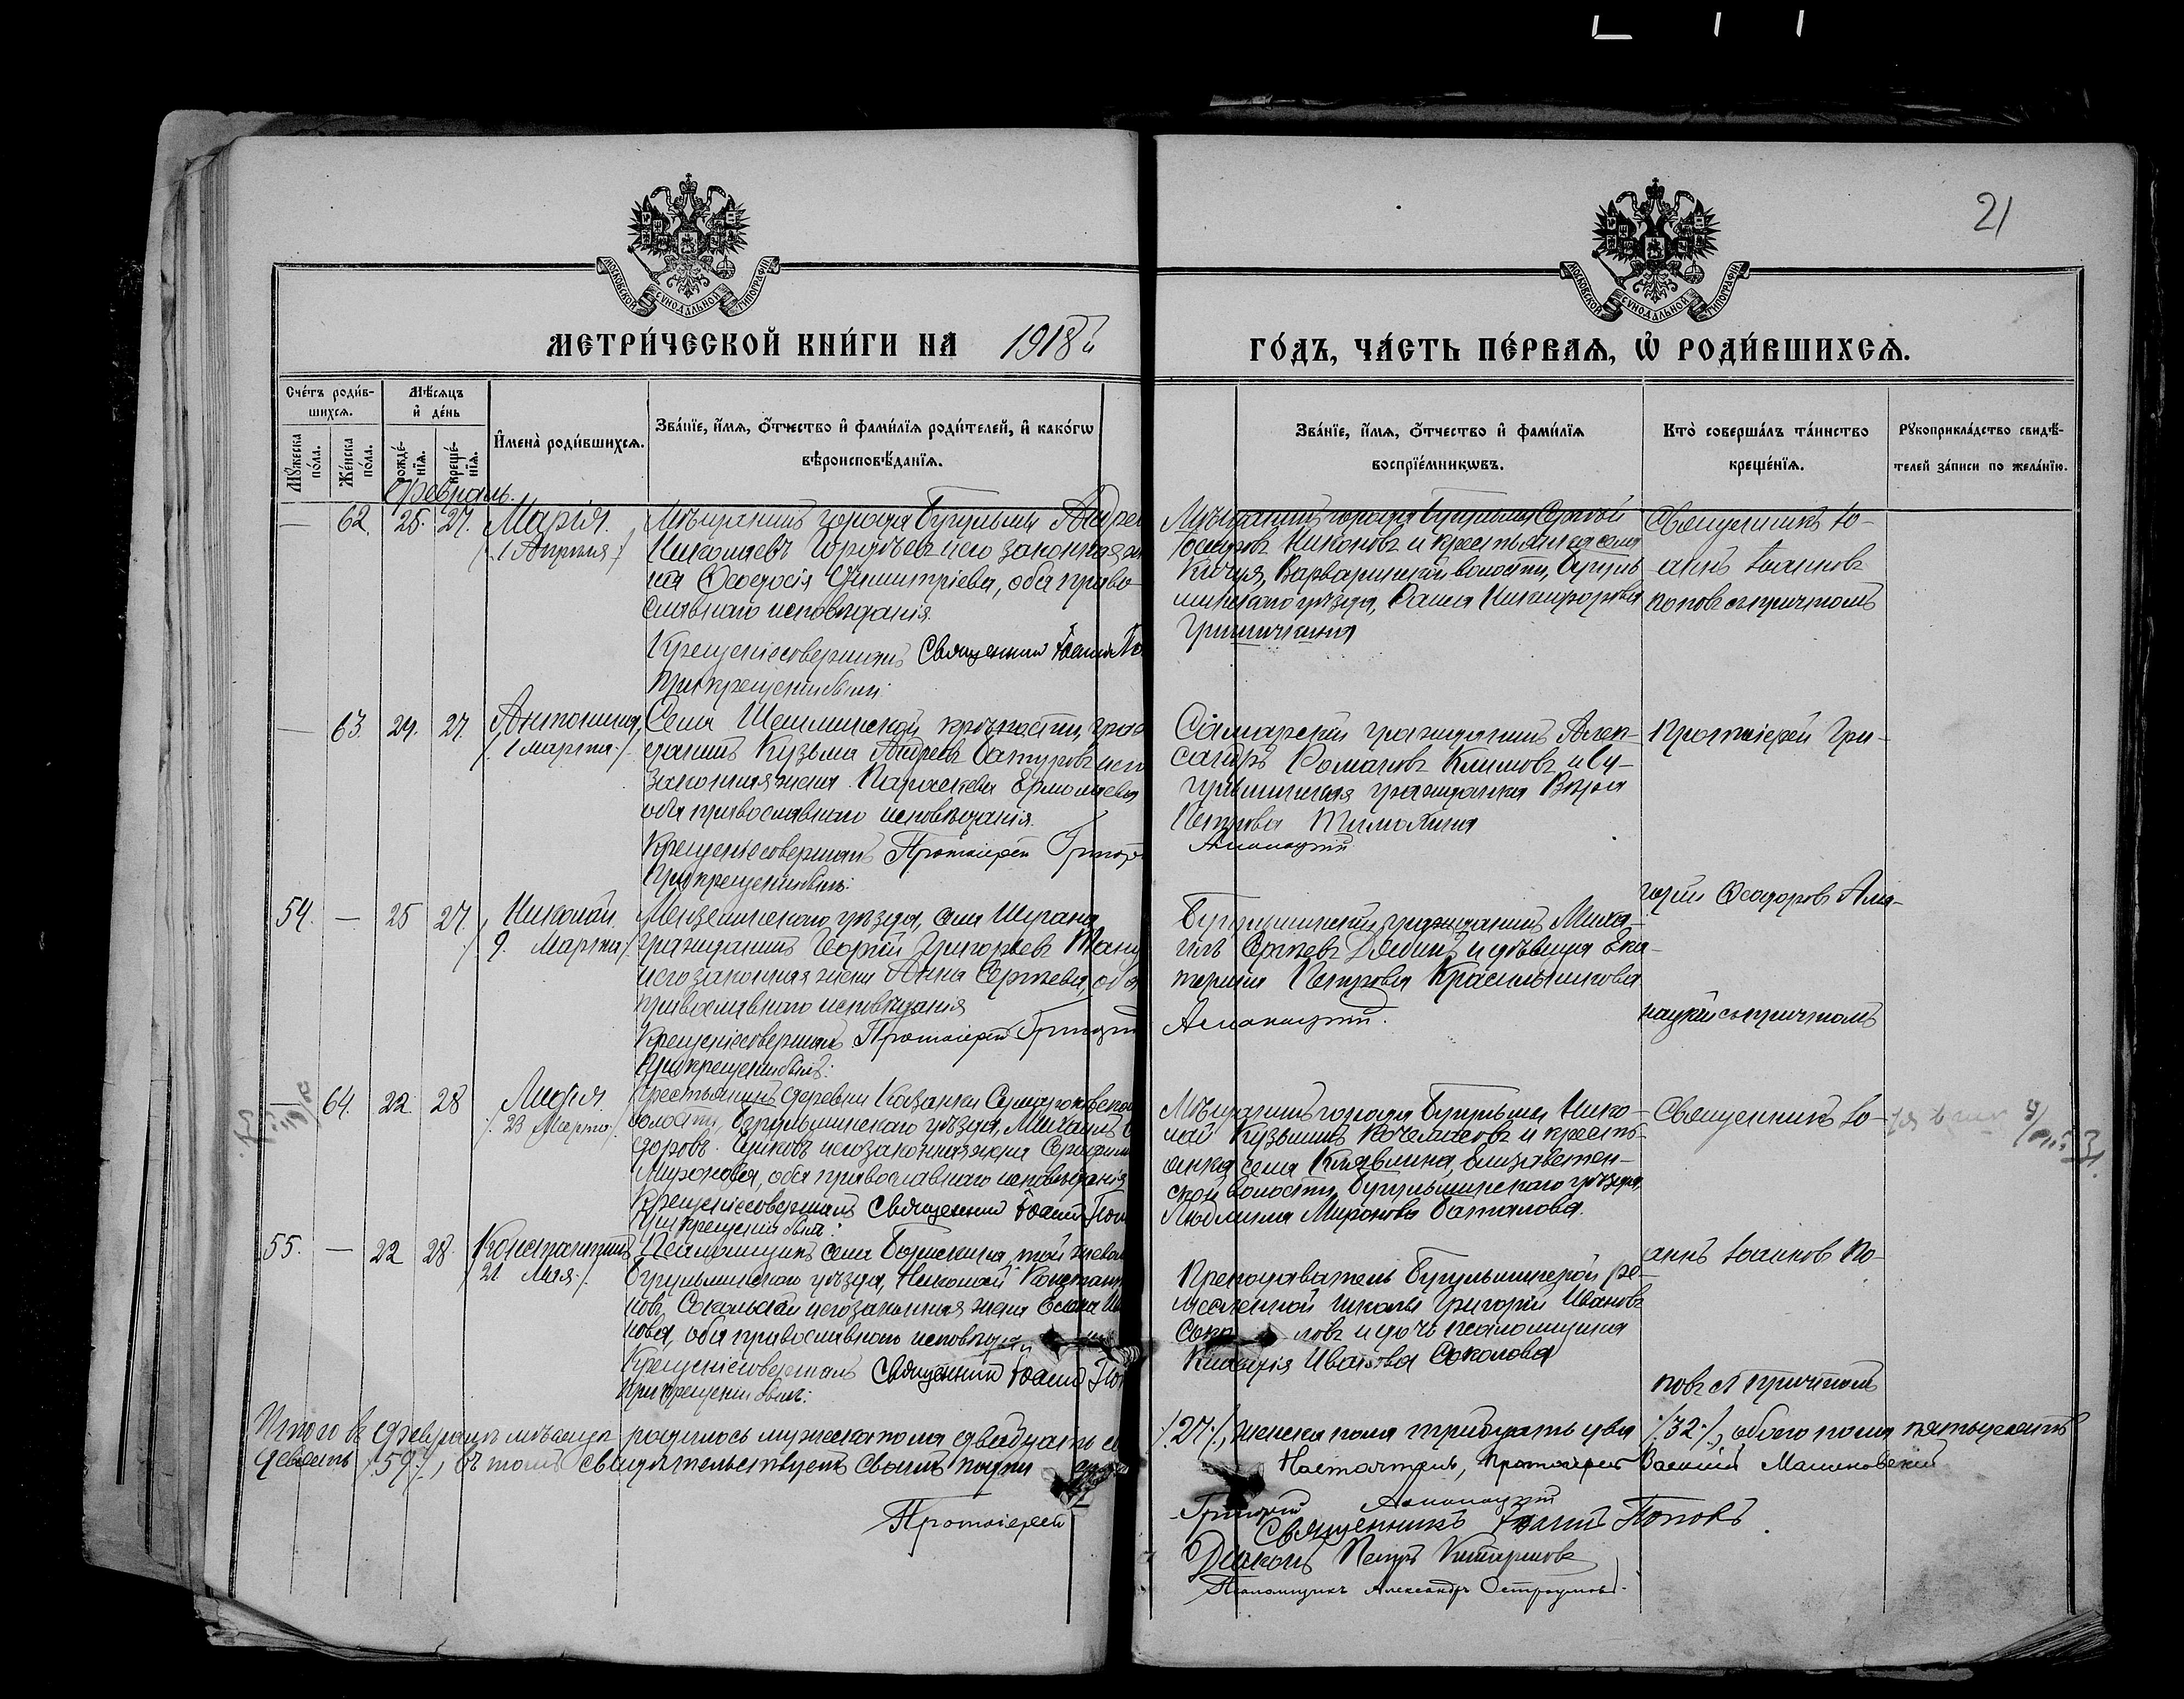 21
МОСКОВСКОЙ СѴНОДАЛЬНОЙ ТИПОГРАФІИ
МОСКОВСКОЙ СѴНОДАЛЬНОЙ ТИПОГРАФІИ
МЕТРИ́ЧЕСКОЙ КНИ́ГИ НА 1918й
ГО́ДЪ, ЧА́СТЬ ПЕ́РВАѦ, Ѡ҆ РОДИ́ВШИХСѦ.
Сче́тъ роди́вшихсѧ.
Мꙋ́жеска по́ла.
Же́нска по́ла.
Мѣ́сѧцъ и҆ де́нь
рожде́нїѧ.
креще́нїѧ.
И҆мена̀ роди́вшихсѧ.
Зва́нїе, и҆́мѧ, ѻ҆́тчество и҆ фами́лїѧ роди́телей, и҆ како́гѡ
вѣроисповѣ́данїѧ.
Зва́нїе, и҆́мѧ, ѻ҆́тчество и҆ фами́лїѧ
воспрїе́мникѡвъ.
Кто̀ соверша́лъ та́инство
креще́нїѧ.
Рꙋкоприкла́дство свидѣ́-
телей за́писи по жела́нїю.
Февраль.
— 62. 25. 27. Марія.
/1 Апрѣля./
Мѣщанинъ города Бугульмы Андрей
Николаевъ Гордѣевъ и его законная
на Ѳеодосія Димитріева, оба право-
славнаго исповѣданія.
Крещеніе совершалъ Священникъ Іоаннъ По
При крещеніи былъ:
Мѣщанинъ города Бугульмы Сергѣй
Никоновъ и крестьянка села
Варваринской волости, Бугуль-
минскаго уѣзда,
Священникъ Іо-
аннъ Іоанновъ
Поповъ съ причтомъ
— 63. 24. 27. Антонина,
/1 Марта./
Села Шешминской крѣпости, граж
данинъ Кузьма Андреевъ Батуровъ и его
законная жена Параскева Ермолаева
оба православнаго исповѣданія.
Крещеніе совершалъ Протоіерей Григорій
При крещеніи былъ:
Самарскій гражданинъ Алек-
сандръ Романовъ Климовъ и Бу-
гульминская гражданка Вѣра
Петрова
Протоіерей Гри-
горій Ѳеодоровъ
54. — 25 27. Николай.
/9. Марта./
Мензелинскаго уѣзда, села
гражданинъ Георгій Григорьевъ
и его законная жена Анна Сергѣева, оба
православнаго исповѣданія
Крещеніе совершалъ Протоіерей Григорій
При крещеніи былъ:
Бугульминскій гражданинъ Миха-
илъ Сергѣевъ и дѣвица Ека-
терина Петрова Красильникова
съ причтомъ
— 64. 22. 28 Лидія.
/23 Марта./
Крестьянинъ деревни Казанки
волости, Бугульминскаго уѣзда, Михаилъ
доровъ и его законная жена
Миронова, оба православнаго исповѣданія
Крещеніе совершалъ Священникъ Іоаннъ Поп
При крещеніи былъ:
Мѣщанинъ города Бугульмы Нико-
лай Кузьминъ Кочемасовъ и кресть-
янка села Клявлина, Елизаветин-
ской волости, Бугульминскаго уѣзда,
Людмила Миронова Баталова.
Священникъ Іо-
аннъ Іоанновъ По-
повъ съ причтомъ
55. — 22 28. Константинъ
/21 Мая./
Псаломщикъ села Борискина, той же вол
Бугульминскаго уѣзда, Николай Констант
новъ Сокольскій и его законная жена Елена Ив
нова, оба православнаго исповѣдан
Крещеніе совершалъ Священникъ Іоаннъ Поп
При крещеніи былъ:
Преподаватель Бугульминской ре-
месленной школы Григорій Ивановъ
и дочь псаломщика
Клавдія Иванова Соколова
Итого въ февралѣ мѣсяцѣ родилось мужеска пола двадцать се
/27./, женска пола тридцать два /32./, обоего пола пятьдесятъ
девять /59/, въ томъ свидѣтельствуемъ своимъ подпи
Настоятель, Протоіерей Василій Малиновскій
Протоіерей Григорій
Священникъ Іоаннъ Поповъ
Діаконъ Петръ
Псаломщикъ Александръ Остроумовъ.